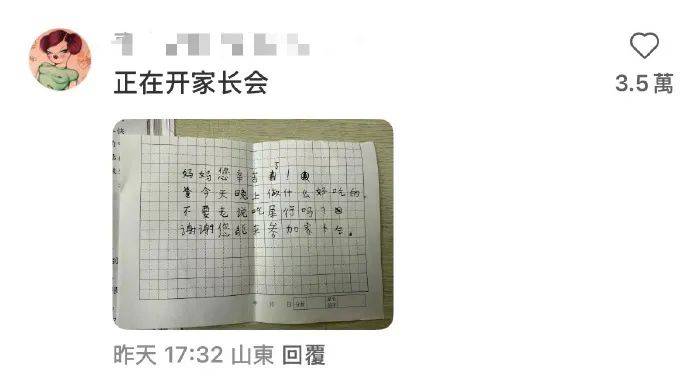 正在开家长会
3.5 萬
妈妈您辛苦了！
今天晚上做什么好吃的。
不要老说吃屎行吗？
谢谢您能来参加家长会。
年 月 日
昨天 17:32 山東 回覆